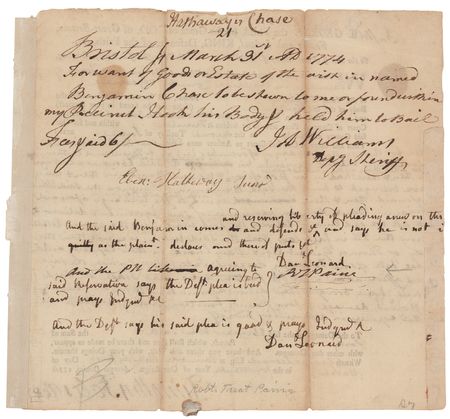 Hathaway vs Chase
21
Bristol ss March 31st AD 1774
For want of Goods or Estate of the within named
Benjamin Chase to be shewn to me or found within
my Precinct I took his Body & held him to Bail
Fees paid 6/
Jd Williams
Dep Sheriff
Eben: Hathway Junr
and reserving liberty of pleading anew on the
And the said Benjamin comes and defends &c and says he is not
guilty as the plain. declares and thereof puts
Dan Leonard
RTPaine
And the Plt agreeing to
said reservation says the Defts plea is bad
and prays Judgmt &c
And the Deft says his said plea is good & prays Judgmt &
Danl Leonard
Robt. Treat Paine